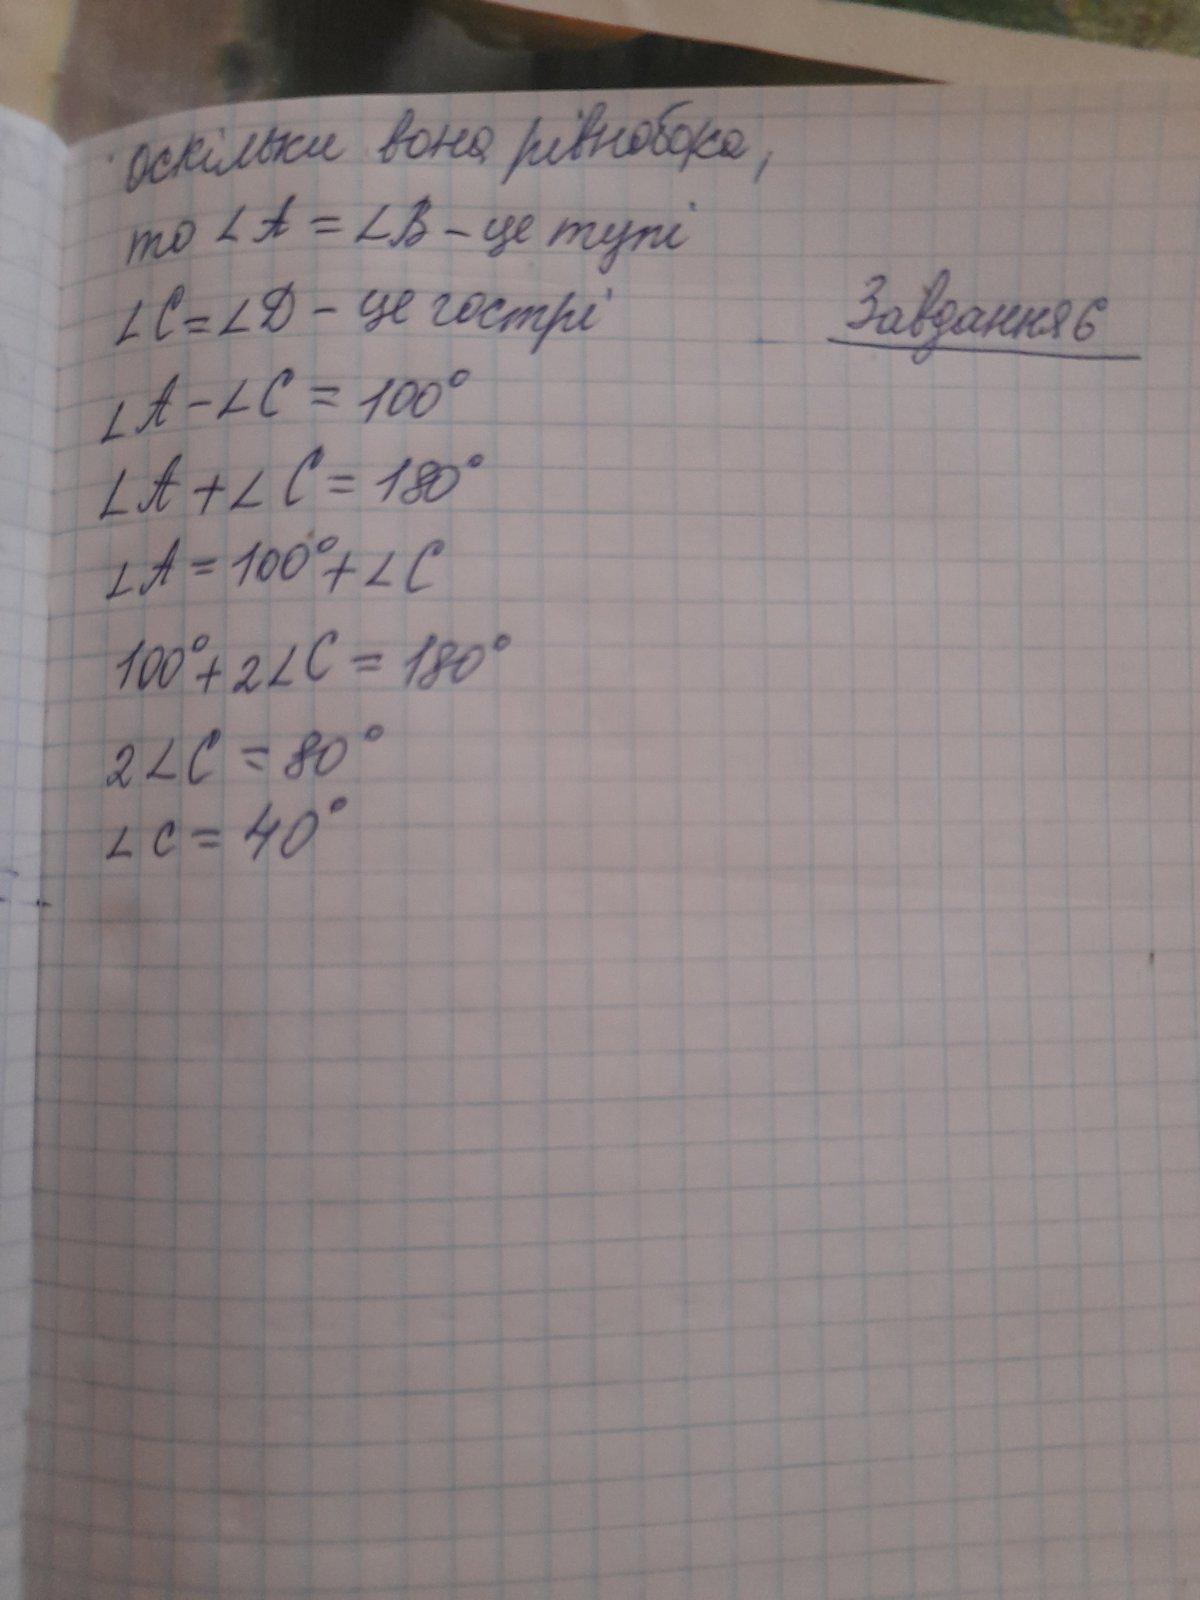 оскільки вона рівнобока,
то ∠A = ∠B – це тупі
∠C = ∠D – це гострі
Завдання 6
∠A – ∠C = 100°
∠A + ∠C = 180°
∠A = 100° + ∠C
100° + 2∠C = 180°
2∠C = 80°
∠c = 40°